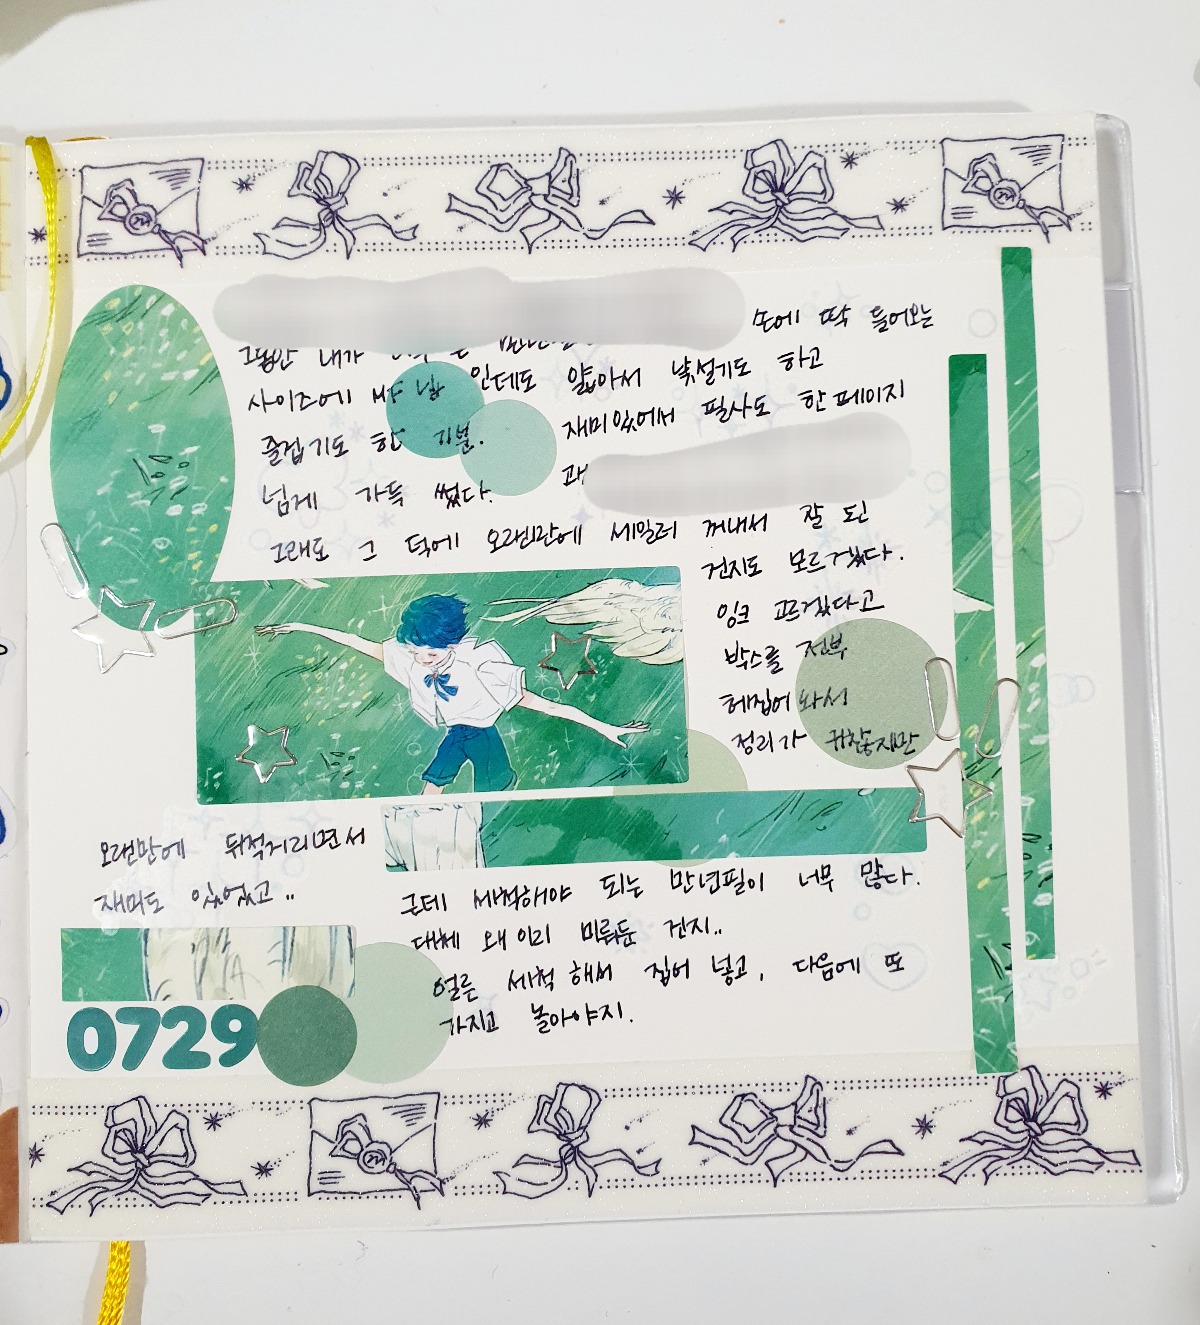 손에 딱 들어오는
그동안 내가
사이즈에 바디 납 인데도 얇아서 낯설기도 하고
즐겁기도 한 기분. 재미있어서 필사도 한 페이지
넘게 가득 썼다.
그래도 그 덕에 오랜만에 세일러 꺼내서 잘 된
건지도 모르겠다.
잉크 고르겠다고
박스를 전부
헤집어 놔서
정리가 귀찮지만
오랜만에 뒤적거리면서
재미도 있었고..
근데 세척해야 되는 만년필이 너무 많다.
대체 왜 이리 미뤄둔 건지..
얼른 세척해서 집어 넣고, 다음에 또
가지고 놀아야지.
0729